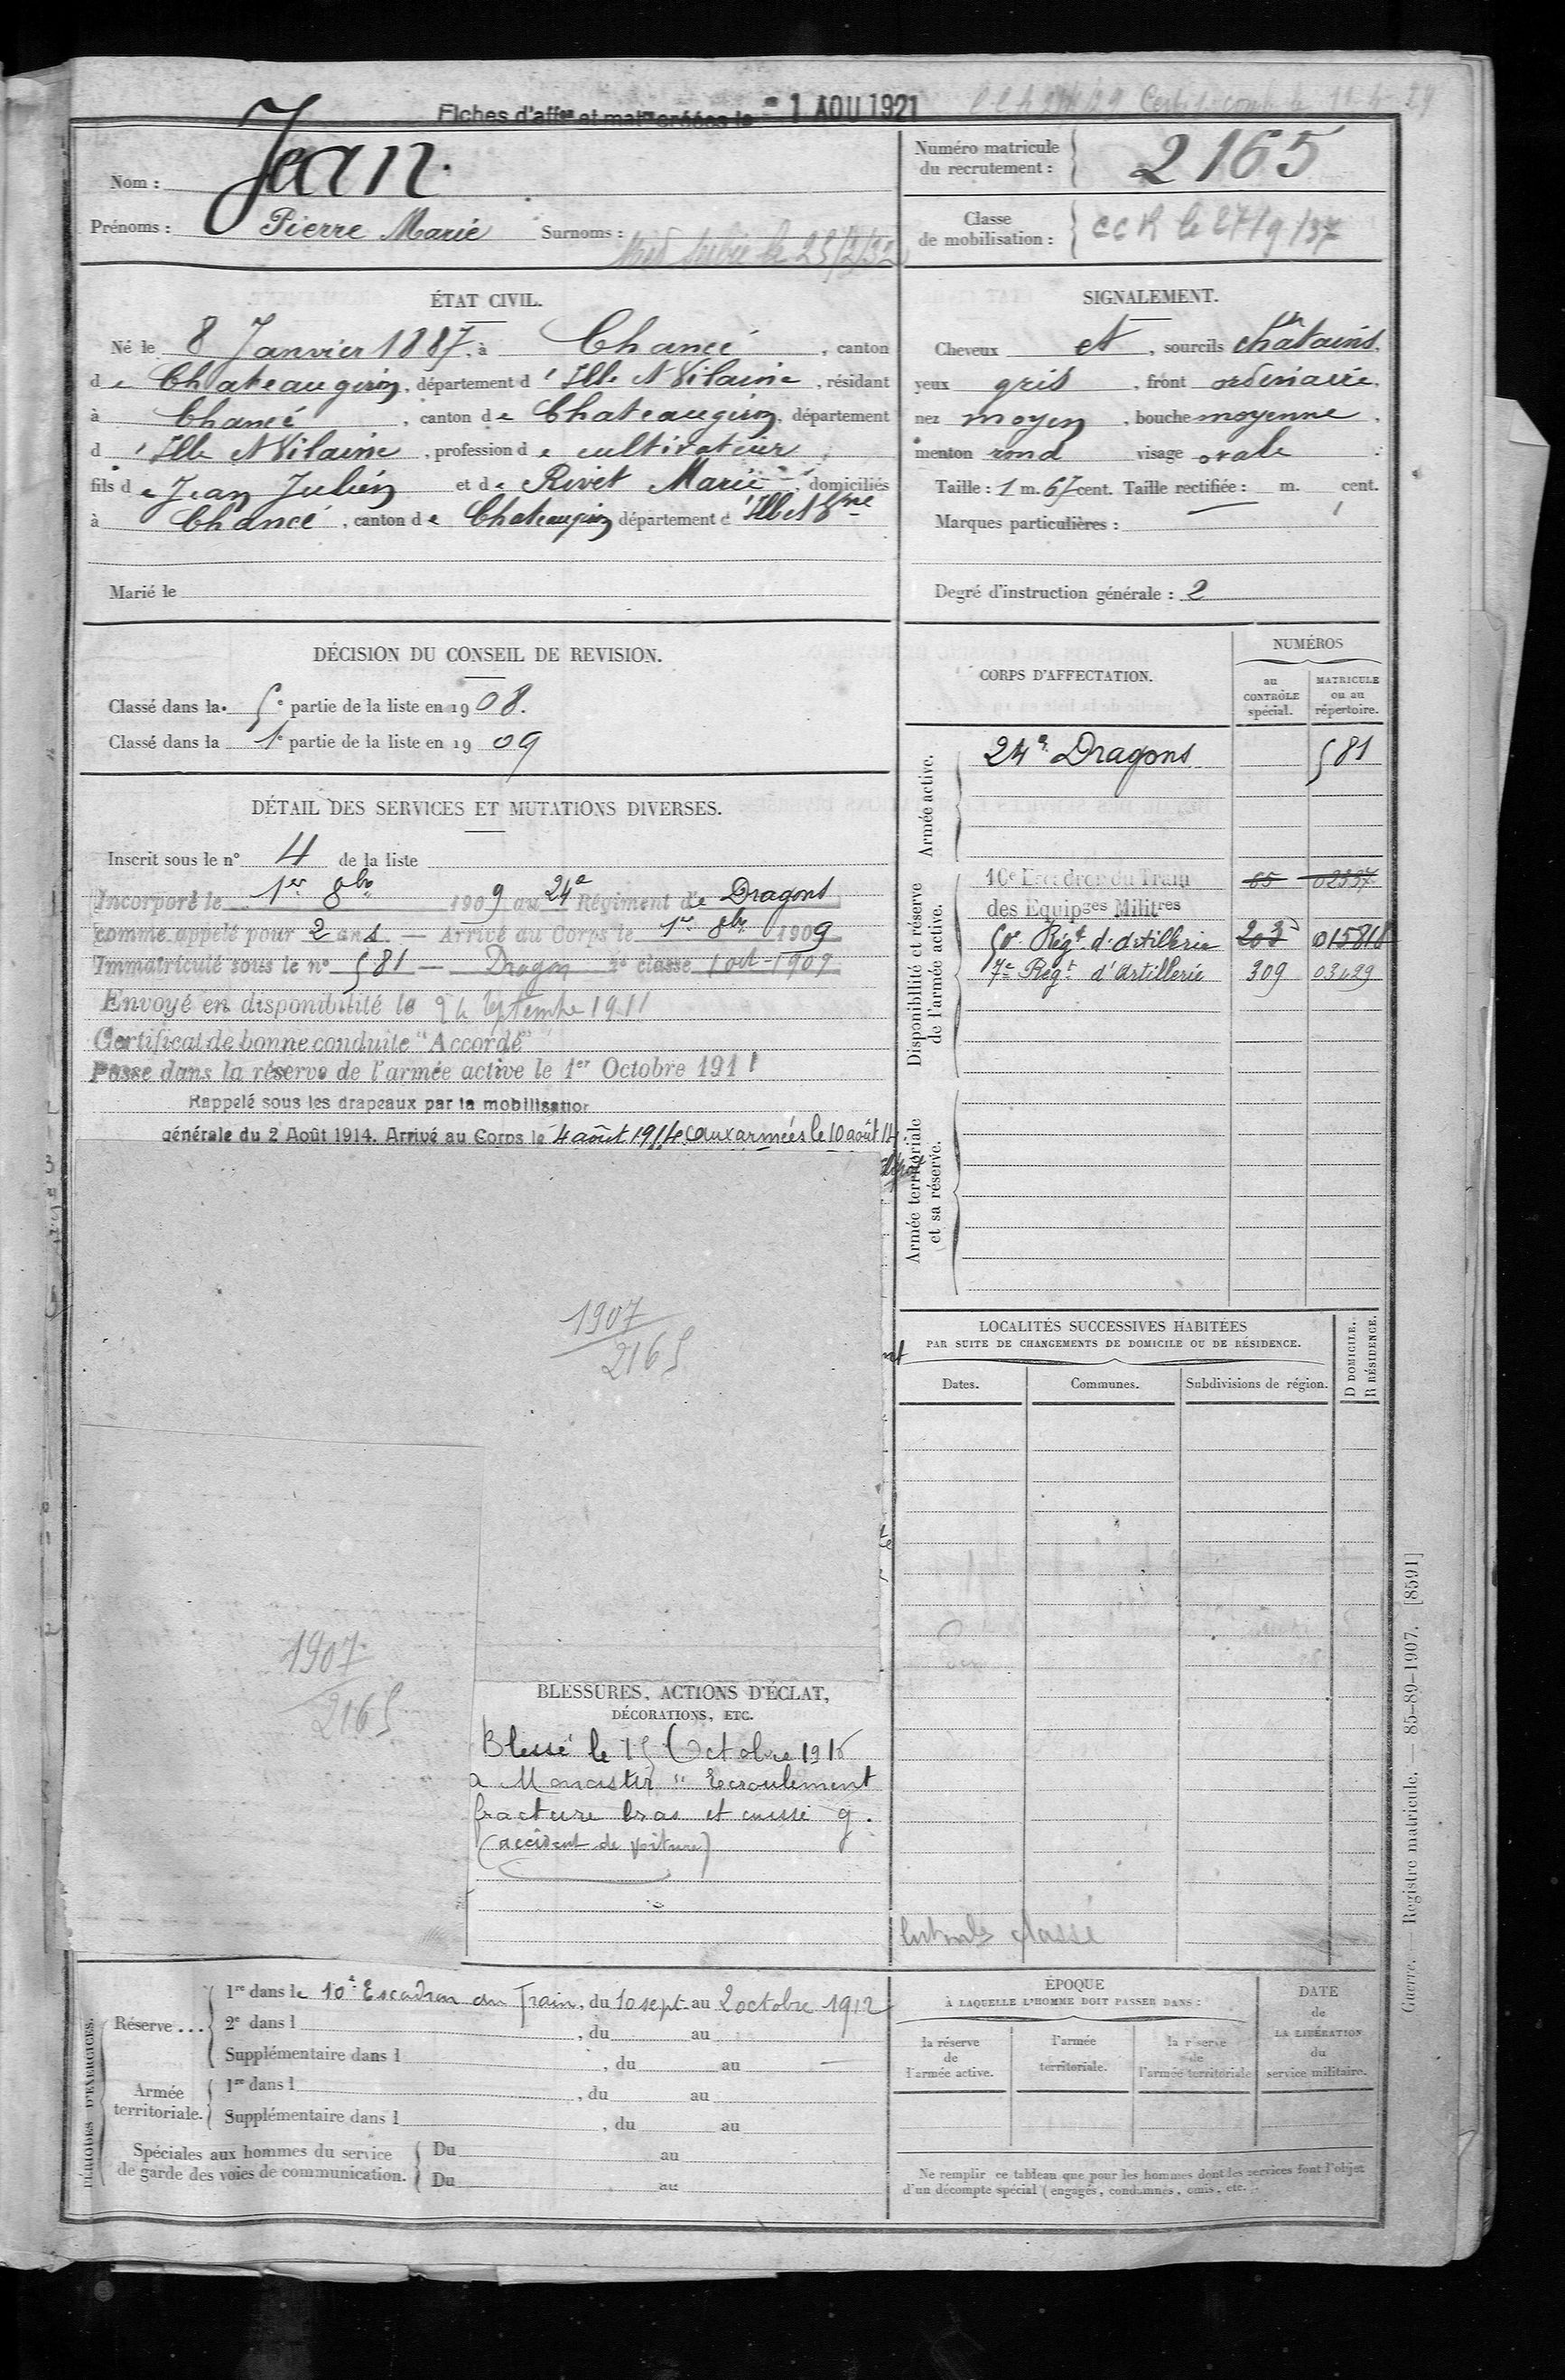 Fiches d'aff^on et mat^on créées le - 1 AOU 1921
Nom : Jean
Prénoms : Pierre Marie Surnoms :
Numéro matricule du recrutement : 2165
Classe de mobilisation : CCR le 27/9/37
ÉTAT CIVIL.
Né le 8 Janvier 1887, à Chancé, canton
de Chateaugiron, département d'Ille et Vilaine, résidant
à Chancé, canton de Chateaugiron, département
d'Ille et Vilaine, profession de cultivateur
fils de Jean Julien et de Rivet Marie, domiciliés
à Chancé, canton de Chateaugiron département d'Ille et V^ne
Marié le
SIGNALEMENT.
Cheveux et, sourcils châtains,
yeux gris, front ordinaire,
nez moyen, bouche moyenne,
menton rond visage ovale
Taille : 1 m. 67 cent. Taille rectifiée : m. cent.
Marques particulières :
Degré d'instruction générale : 2
DÉCISION DU CONSEIL DE REVISION.
Classé dans la 5e partie de la liste en 1908.
Classé dans la 1e partie de la liste en 1909
DÉTAIL DES SERVICES ET MUTATIONS DIVERSES.
Inscrit sous le n° 4 de la liste
Incorporé le 1er 8bre 1909 au 24e Régiment de Dragons
comme appelé pour 2 ans — Arrivé au Corps le 1er 8bre 1909
Immatriculé sous le n° 581 — Dragon 2e classe 1 oct 1909
Envoyé en disponibilité le 24 septembre 1911
Certificat de bonne conduite "Accordé"
Passe dans la réserve de l'armée active le 1er Octobre 1911
Rappelé sous les drapeaux par la mobilisation
générale du 2 Août 1914. Arrivé au Corps le 4 août 1914 aux armées le 10 août 14
1907
2165
1907
2165
BLESSURES, ACTIONS D'ÉCLAT,
DÉCORATIONS, ETC.
Blessé le 15 Octobre 1916
a Monastir " Ecroulement
fracture bras et cuisse g.
(accident de voiture)
CORPS D'AFFECTATION.
NUMÉROS
au CONTRÔLE spécial.
MATRICULE ou au répertoire.
Armée active.
24e Dragons 581
Disponibilité et réserve de l'armée active.
10e Escadron du Train 65 02337
des Equipges Militres
50e Régt d'artillerie 203 015818
7e Régt d'Artillerie 309 03429
Armée territoriale et sa réserve.
LOCALITÉS SUCCESSIVES HABITÉES
PAR SUITE DE CHANGEMENTS DE DOMICILE OU DE RÉSIDENCE.
Dates. Communes. Subdivisions de région. D DOMICILE. R RÉSIDENCE.
classé
PÉRIODES D'EXERCICES.
Réserve...
1re dans le 10e Escadron du Train, du 10 sept au 2 octobre 1912
2e dans l , du au
Supplémentaire dans l , du au
Armée territoriale.
1re dans l , du au
Supplémentaire dans l , du au
Spéciales aux hommes du service
de garde des voies de communication.
Du au
Du au
ÉPOQUE
À LAQUELLE L'HOMME DOIT PASSER DANS :
la réserve de l'armée active.
l'armée territoriale.
la réserve de l'armée territoriale
DATE de LA LIBÉRATION du service militaire.
Ne remplir ce tableau que pour les hommes dont les services font l'objet
d'un décompte spécial (engagés, condamnés, omis, etc.
Guerre. — Registre matricule. — 85-89-1907. [8591]